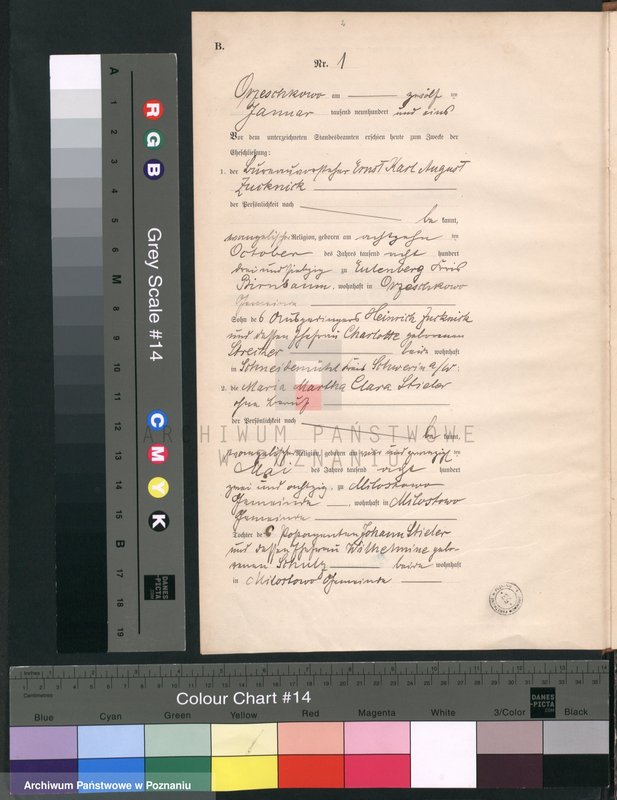 2
B.
Nr. 1
Orzeschkowo am zwölf ten
Januar tausend neunhundert und eins
Vor dem unterzeichneten Standesbeamten erschien heute zum Zwecke der
Eheschließung:
1. der Bureauvorsteher Ernst Karl August
Zucknick
der Persönlichkeit nach
be kannt,
evangelischer Religion, geboren am achtzehn ten
October des Jahres tausend acht hundert
drei und siebzig zu Eulenberg Kreis
Birnbaum, wohnhaft in Orzeschkowo
Gemeinde
Sohn des Ausgedingers Heinrich Zucknick
und dessen Ehefrau Charlotte geborenen
beide wohnhaft
in Schneidemühl Kreis Schwerin a/W.
2. die Maria Martha Clara Stieler
ohne Beruf
der Persönlichkeit nach
be kannt,
evangelischer Religion, geboren am zwei und zwanzigsten
Mai des Jahres tausend acht hundert
zwei und achtzig, zu Milostowo
Gemeinde, wohnhaft in Milostowo
Gemeinde
Tochter des Johann Stieler
und dessen Ehefrau Wilhelmine gebo-
renen Schulz beide wohnhaft
in Milostowo Gemeinde
ARCHIWUM PAŃSTWOWE
W POZNANIU
A 1 2 3 4 5 6 M 8 9 10 11 12 13 14 15 B 17 18 19
R G B
Grey Scale #14
C M Y K
DANES
-PICTA
.COM
Inches 1 2 3 4 5 6 7 8 9 10 11 12 13 14
Centimetres
Colour Chart #14
DANES
-PICTA
.COM
Blue Cyan Green Yellow Red Magenta White 3/Color Black
Archiwum Państwowe w Poznaniu